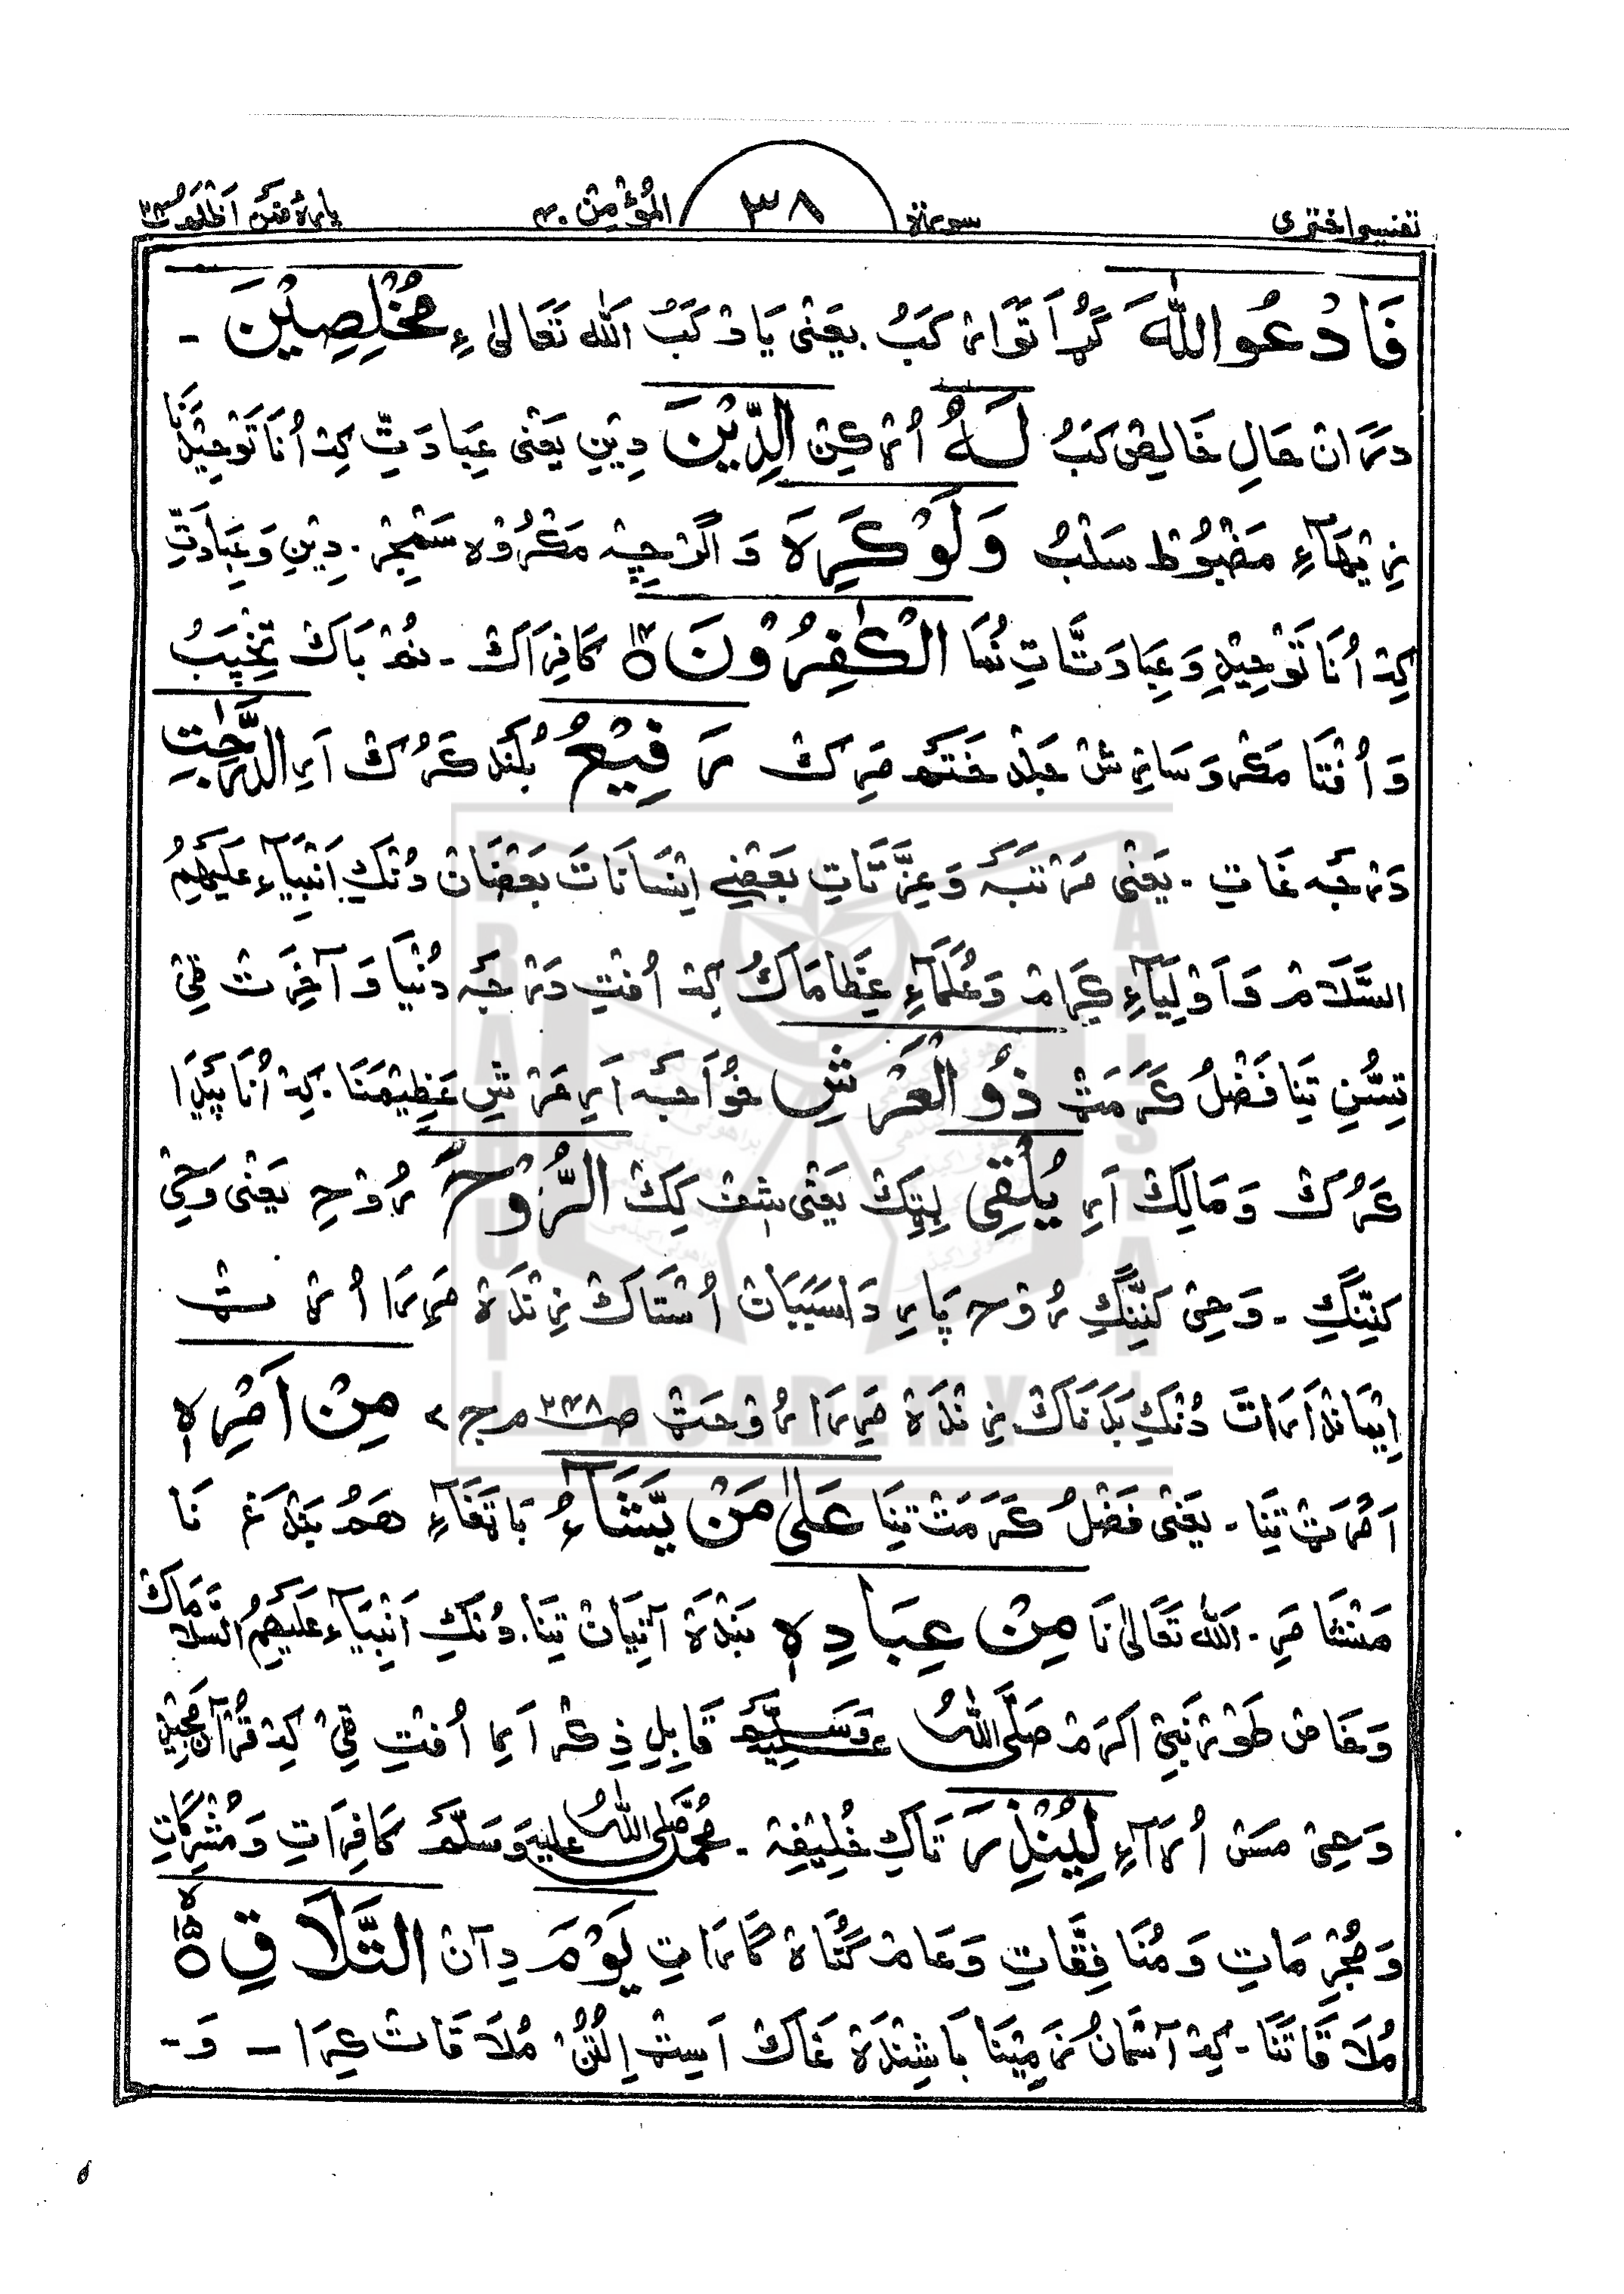 تفسیر اختری سورة ٣٨ المُؤْمِن ٤٠ پارهٔ فَمَن اَظْلَم ٢٤
فَادْعُوا اللّٰهَ گُڑا تَوَار کَبُ. یَعْنٰی یَاد کَبُ اللّٰه تَعَالیٰ ءِ مُخْلِصِیْنَ -
دَرَان حَالِ خَالِص کَبُ لَهُ اُرْکِن الدِّیْنَ دِیْنِ یَعْنٰی عِبَادَتِ کِہ اُنَا تَوْحِیْدنَا
نِیْهَاءِ مَضْبُوْط سَلْبُ وَلَوْ کَرِهَ وَ اگرْچِہ مَکْرُوْه سَمْجِر. دِیْنِ وَ عِبَادَتِ
کِہ اُنَا تَوْحِیْدِ وَ عِبَادَتَاتِ نُمَا الْکٰفِرُوْنَ ۱۴ کَافِرَاک - نُم بَاک تِخِپَبُ
وَ اُفْتَا مَکْر وَ سَازِش جَلْد خَتَم مَرِک رَفِیْعُ بُلَند کَرُک اَرِ الدَّرَجٰتِ
دَرْجَه غَاتِ - یَعْنٰی مَرْتَبَه وَ عِزَّتَاتِ بَعْضے اِنْسَانَاتَ بَعْضَان دُنْکِ اَنْبِیَآءِ عَلَیْهِمُ
السَّلَام وَ اَوْلِیَآءِ کِرَام وَ عُلَمَآءِ عِظَامَاک کِہ اُفْتِ دَرْجَه دُنْیَا وَ آخِرَت قِیْ
تِسُّنِ تِنَا فَضْلُ کَرَمَتْ ذُو الْعَرْشِ خُوَاجَه اَرِ عَرْشِ عَظِیْمَنَا. کِہ اُنَا پَیْدَا
کَرُک وَ مَالِک اَرِ یُلْقِی بِتِک یَعْنٰی شِف کِک الرُّوْحَ رُوْحِ یَعْنٰی وَحِیْ
کِنِّنگِ - وَحِیْ کِنِّنگِ رُوْح پَارِ دَاسَبَبَان اُسْتَاک زِنْدَه مَرِرَا اُرْ مٹ
اِیْمَانْدَارَاتَ دُنْکِ بَدَنَاک زِنْدَه مَرِرَا رُوْحَتْ ص ۲۳۸ م ج ۲ مِنْ اَمْرِهٖ
اَمْرَتْ تِنَا - یَعْنٰی فَضْلُ کَرَمَتْ تِنَا عَلٰی مَنْ یَّشَآءُ بَاتَغَاءِ هَمُ بَنْدَغ نَا
مَنْشَا مَرِ - اَللّٰه تَعَالیٰ نَا مِنْ عِبَادِهٖ بَنْدَه آتِیَان تِنَا. دُنْکِ اَنْبِیَآءِ عَلَیْهِمُ السَّلَامَاک
وَ خَاص طَوْر نَبِیْ اَکْرَم صَلَّی اللّٰهُ عَلَیْهِ وَسَلَّم قَابِلِ ذِکْر اَرِ اُفْتِ قِیْ کِہ قُرْآن مَجِیْد
وَحِیْ مَس اُرَآءِ لِیُنْذِرَ تَاکِ خُلِیْفِه - مُحَمَّد صَلَّی اللّٰهُ عَلَیْهِ وَسَلَّم کَافِرَاتِ وَ مُشْرِکَاتِ
وَ مُجْرِمَاتِ وَ مُنَافِقَاتِ وَ عَام گُنَاه گَارَاتِ یَوْمَ دِآن التَّلَاقِ ۱۵
مُلَاقَاتَنَا - کِہ آسْمَانُ زَمِیْنَنَا بَاشِنْدَه غَاک اَسِتْ اِلُنُ مُلَاقَات کِرَا - وَ -
BRAHUI ACADEMY